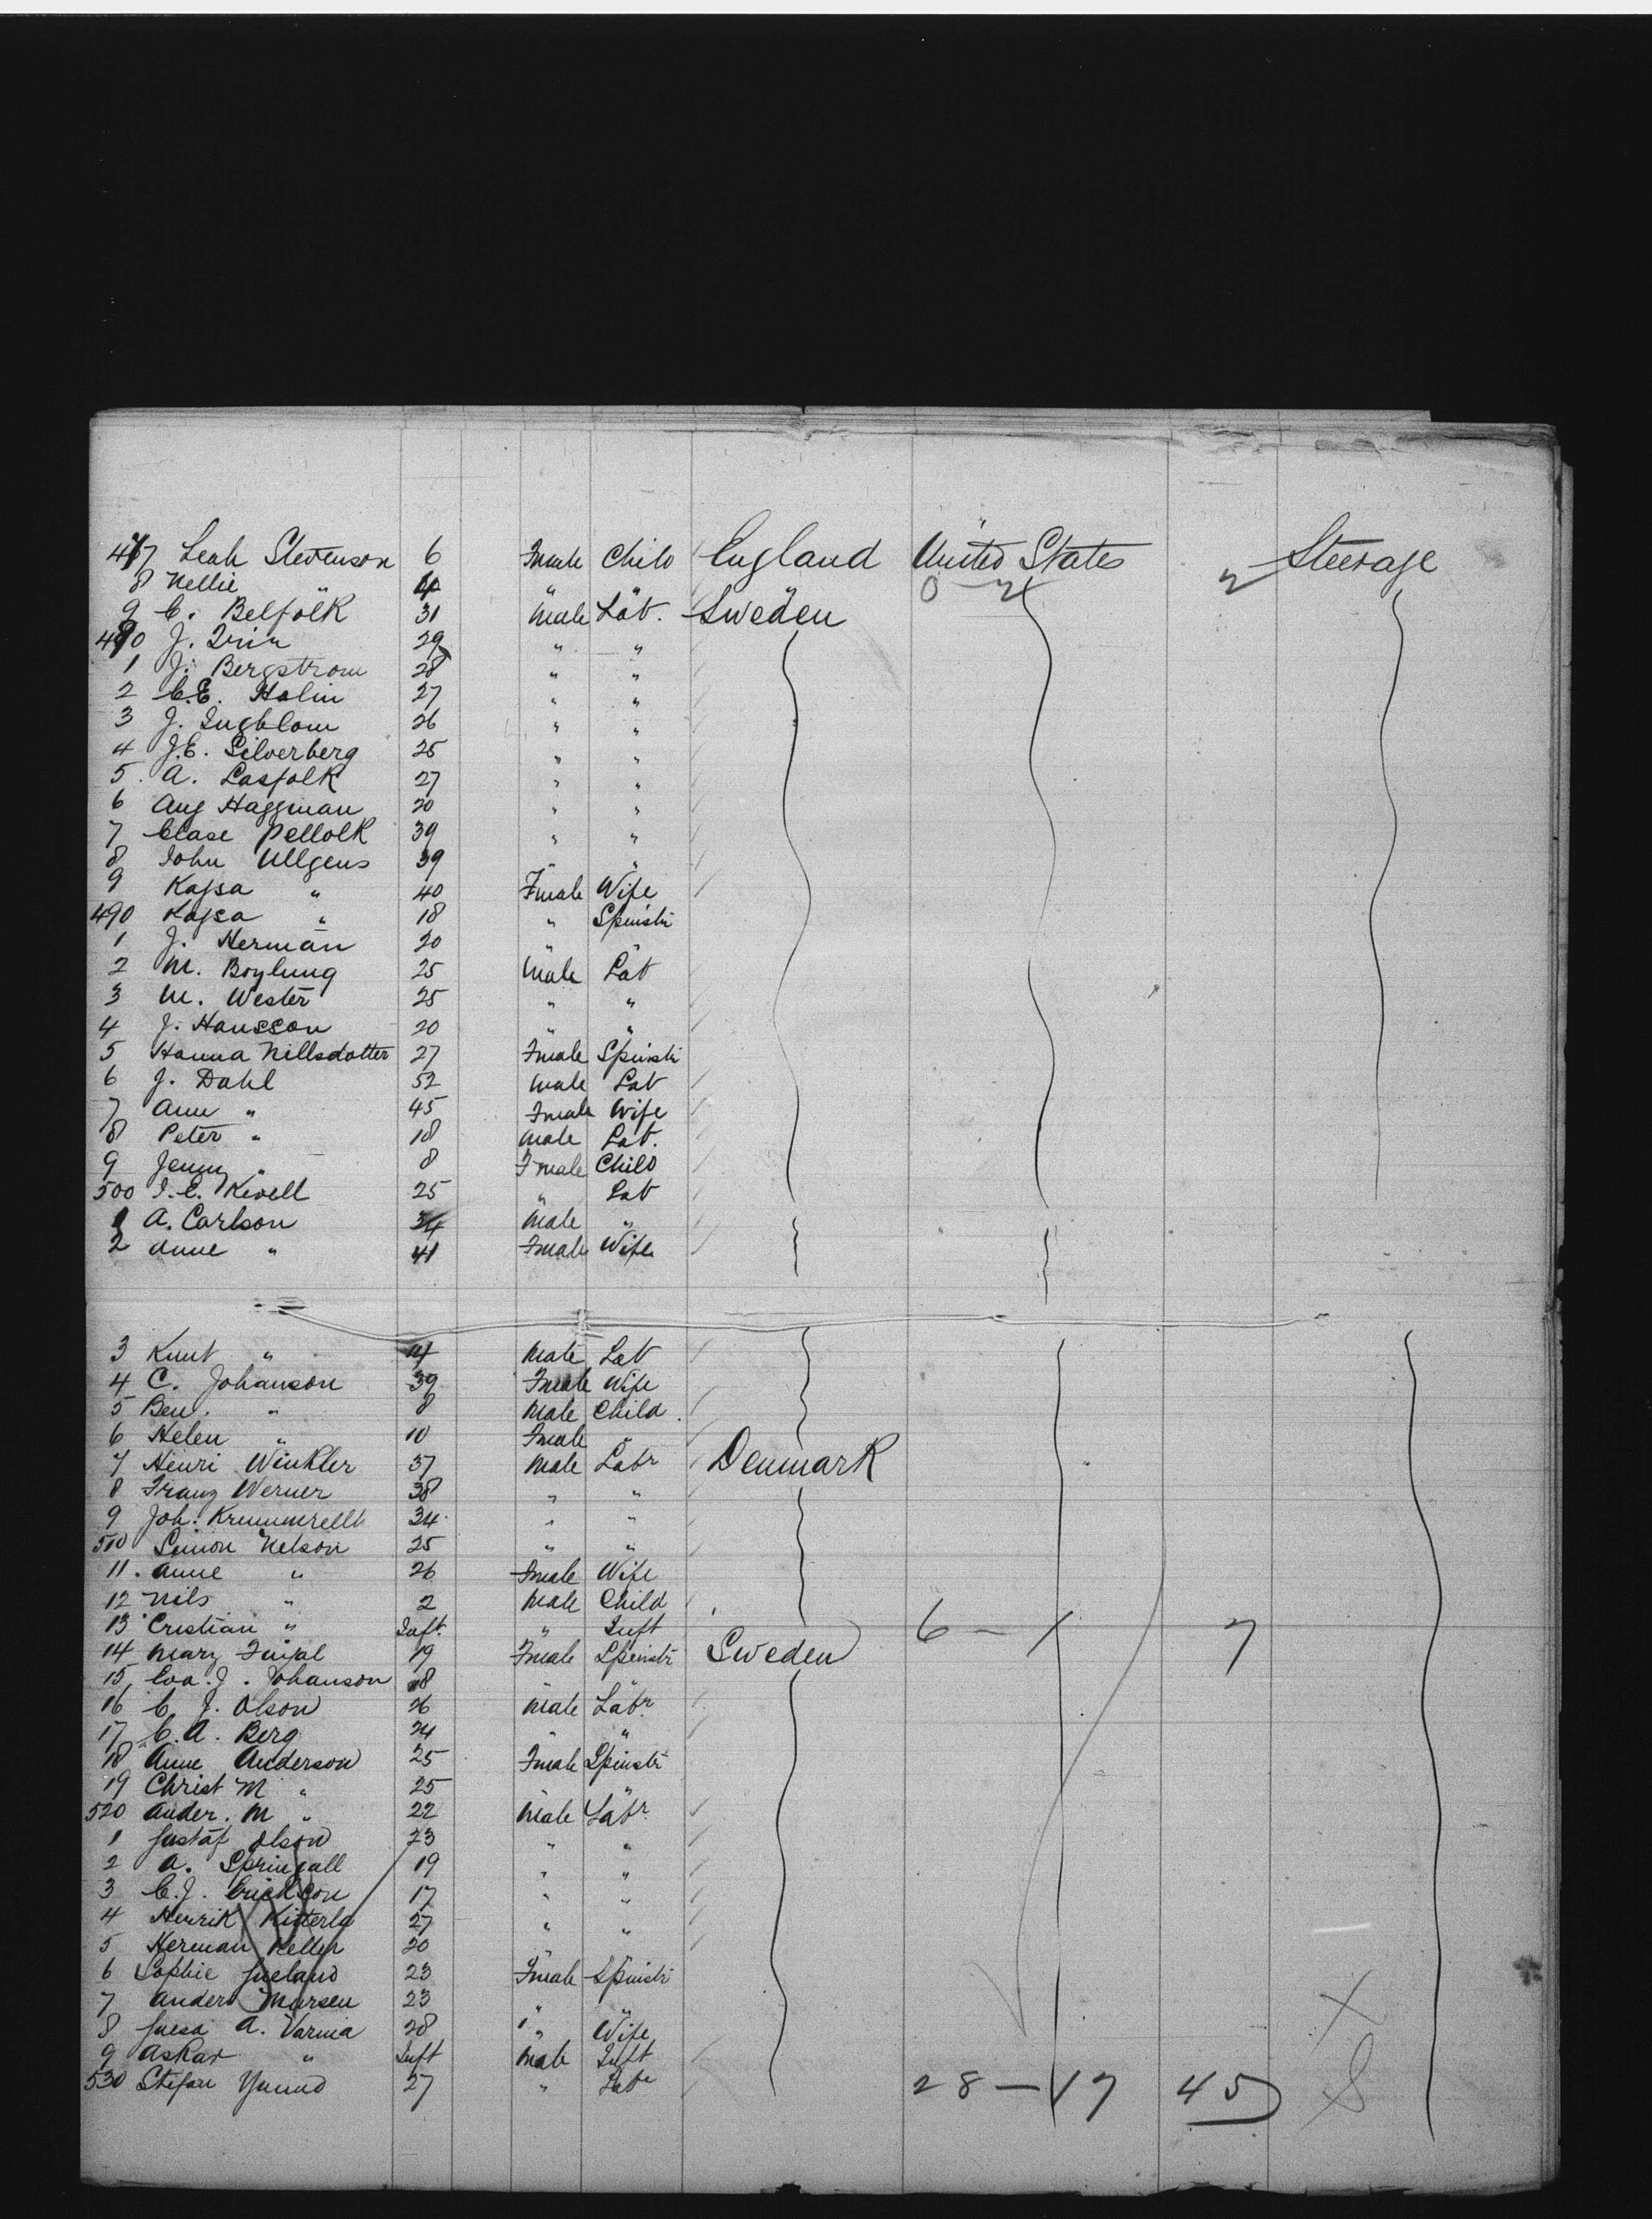 477 Leah Stevenson 6 Fmale Child England United States Steerage
8 Nellie " 4 " " 0 - 2 2
9 C. Belfolk 31 Male Lab. Sweden
480 J. 29 " "
1 J. Bergstrom 28 " "
2 C.E. Holm 27 " "
3 J. Ingblom 26 " "
4 J.E. Silverberg 25 " "
5 A. Lasfolk 27 " "
6 Aug Haggman 20 " "
7 Clase Pellolk 39 " "
8 John Ullgens 39 " "
9 Kajsa " 40 Fmale Wife
490 Kajsa " 18 " Spinstr
1 J. Herman 20 " "
2 M. Boylung 25 Male Lab
3 M. Wester 25 " "
4 J. Hansson 20 " "
5 Hanna Nillsdotter 27 Fmale Spinstr
6 J. Dahl 52 Male Lab
7 Ann " 45 Fmale Wife
8 Peter " 18 Male Lab.
9 Jenny " 8 Fmale Child
500 I.E. Kivell 25 " Lab
1 A. Carlson 34 Male "
2 Anne " 41 Fmale Wife
3 Knut " 14 Male Lab
4 C. Johanson 39 Fmale Wife
5 Ben. " 8 Male Child
6 Helen " 10 Fmale "
7 Henri Winkler 37 Male Labr Denmark
8 Franz Werner 38 " "
9 Joh. 34 " "
510 Simon Nelson 25 " "
11. Anne " 26 Fmale Wife
12 Nils " 2 Male Child
13 Cristian " Inft. " Inft 6 - 1 7
14 Mary 19 Fmale Spinstr Sweden
15 Eva. J. Johanson 18 " "
16 C. J. Olson 26 Male Labr
17 C. A. Berg 24 " "
18 Anne Anderson 25 Fmale Spinstr
19 Christ M " 25 " "
520 Ander. M " 22 Male Labr
1 Gustaf Olson 23 " "
2 A. Springall 19 " "
3 C.J. Erickson 17 " "
4 Henrik Kitterla 27 " "
5 Herman Keller 20 " "
6 Sophie 23 Fmale Spinstr
7 Anders Marsen 23 " "
8 A. Varma 28 " Wife
9 Askar " Inft Male Inft
530 Stefan 27 " Labr 28 - 17 45